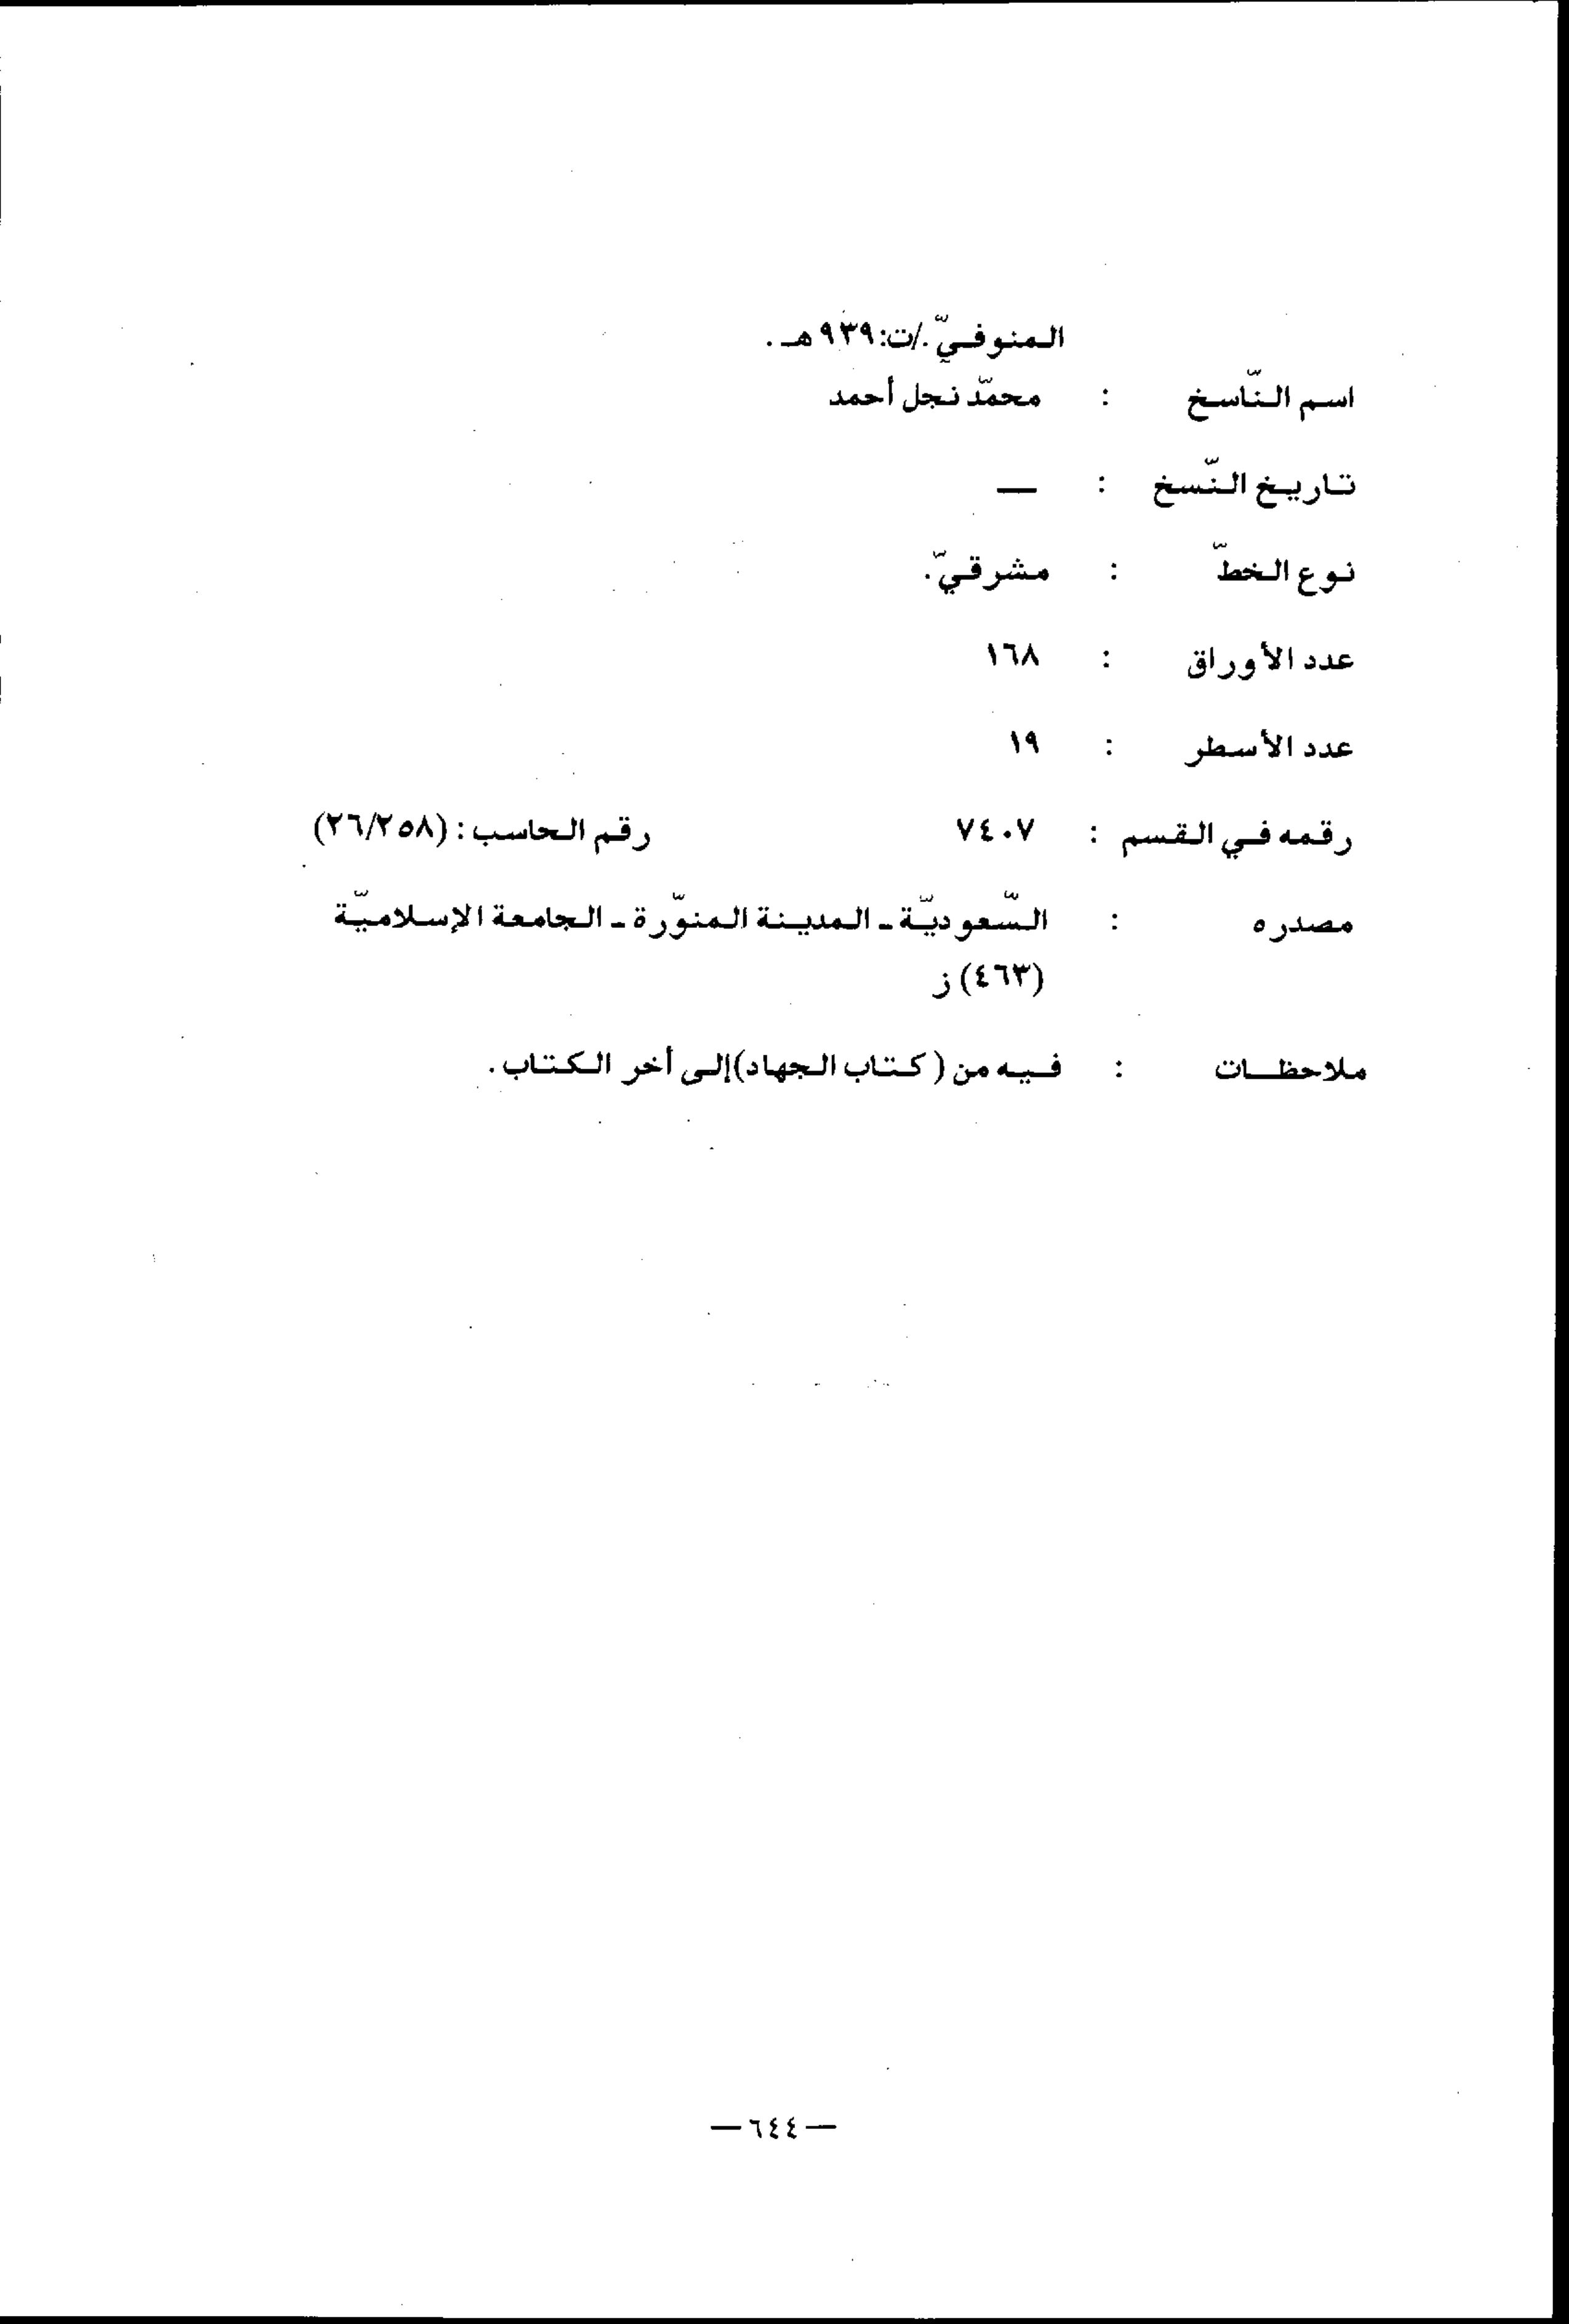 المنوفيّ./ت:٩٣٩هـ .
اسم النّاسخ : محمّد نجل أحمد
تاريخ النّسخ : —
نوع الخطّ : مشرقيّ.
عدد الأوراق : ١٦٨
عدد الأسطر : ١٩
رقمه في القسم : ٧٤٠٧ رقم الحاسب : (٢٦/٢٥٨)
مصدره : السّعوديّة ـ المدينة المنوّرة ـ الجامعة الإسلاميّة
(٤٦٣) ز
ملاحظات : فيه من ( كتاب الجهاد)إلى أخر الكتاب .
— ٦٤٤ —